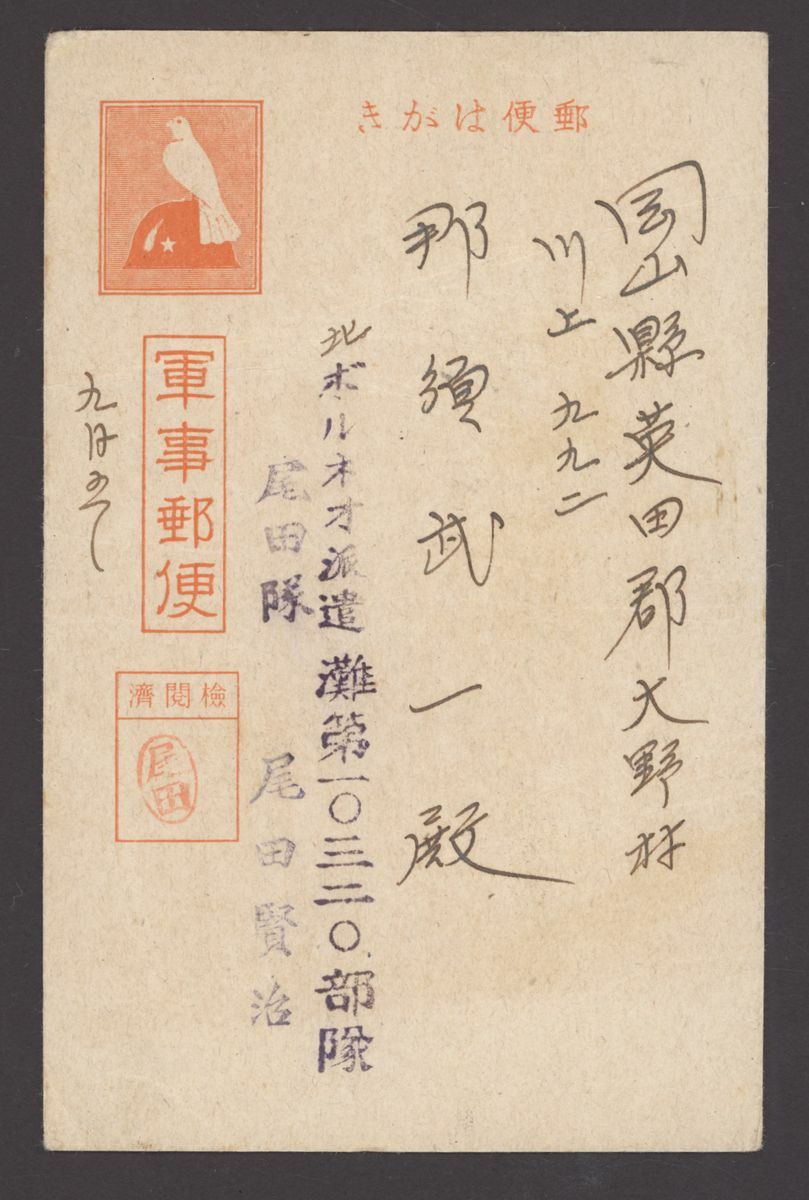 郵便はがき
岡山縣英田郡大野村
川上九九二
那須武一殿
北ボルネオ派遣灘第一〇三二〇部隊
尾田隊 尾田賢治
軍事郵便
檢閲濟
尾田